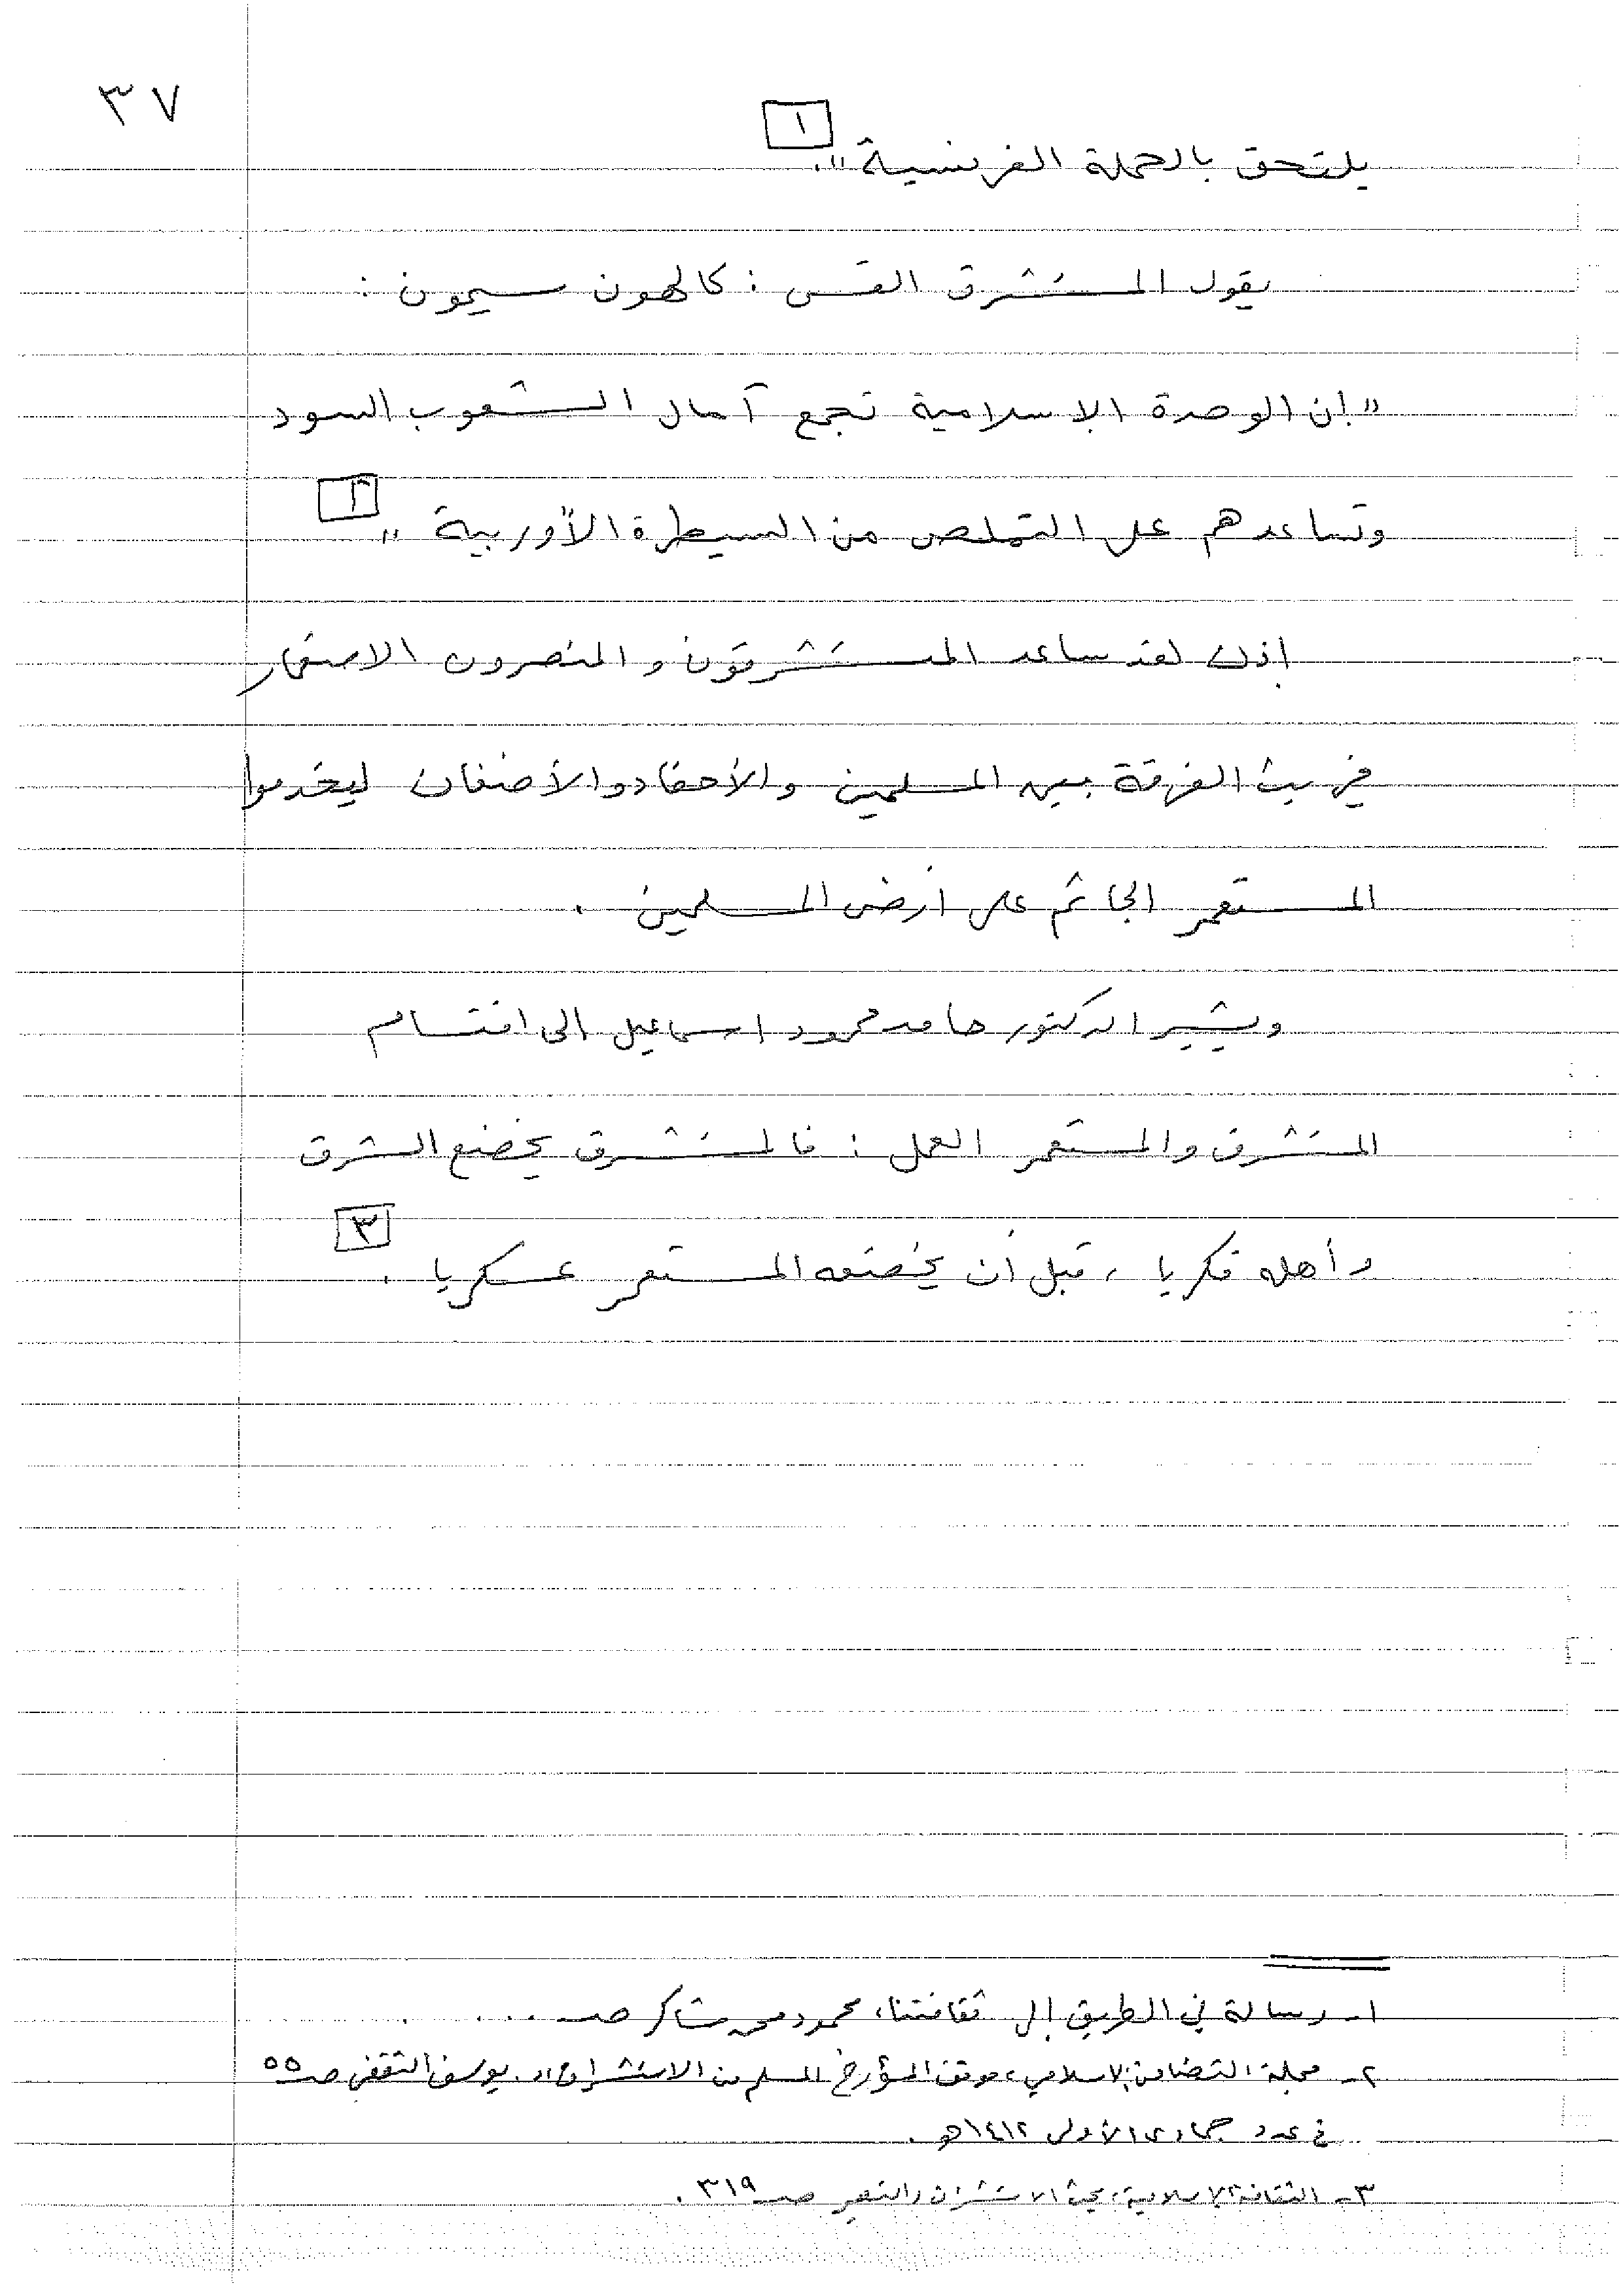 ٣٧
يلتحق بالحملة الفرنسية". [١]
يقول المستشرق القس : كالهون سيمون :
"إن الوحدة الإسلامية تجمع آمال الشعوب السود
وتساعدهم على التملص من السيطرة الأوربية" [٢]
إذن لقد ساعد المستشرقون والمنصرون الاستعمار
في بث الفرقة بين المسلمين والأحقاد والأضغان ليخدموا
المستعمر الجاثم على أرض المسلمين .
ويشير الدكتور حامد محمود اسماعيل الى اقتسام
المستشرق والمستعمر العمل : فالمستشرق يخضع الشرق
وأهله فكريا ، قبل أن يخضعه المستعمر عسكريا . [٣]
١- رسالة في الطريق إلى ثقافتنا، محمود محمد شاكر صـ ...
٢- مجلة التضامن الاسلامي، موقف المؤرخ المسلم من الاستشراق، د. يوسف الثقفي صـ ٥٥
في عدد جمادى الأولى ١٤١٢هـ .
٣- الثقافة الاسلامية، بحث الاستشراق والتنصير صـ ٣١٩ .